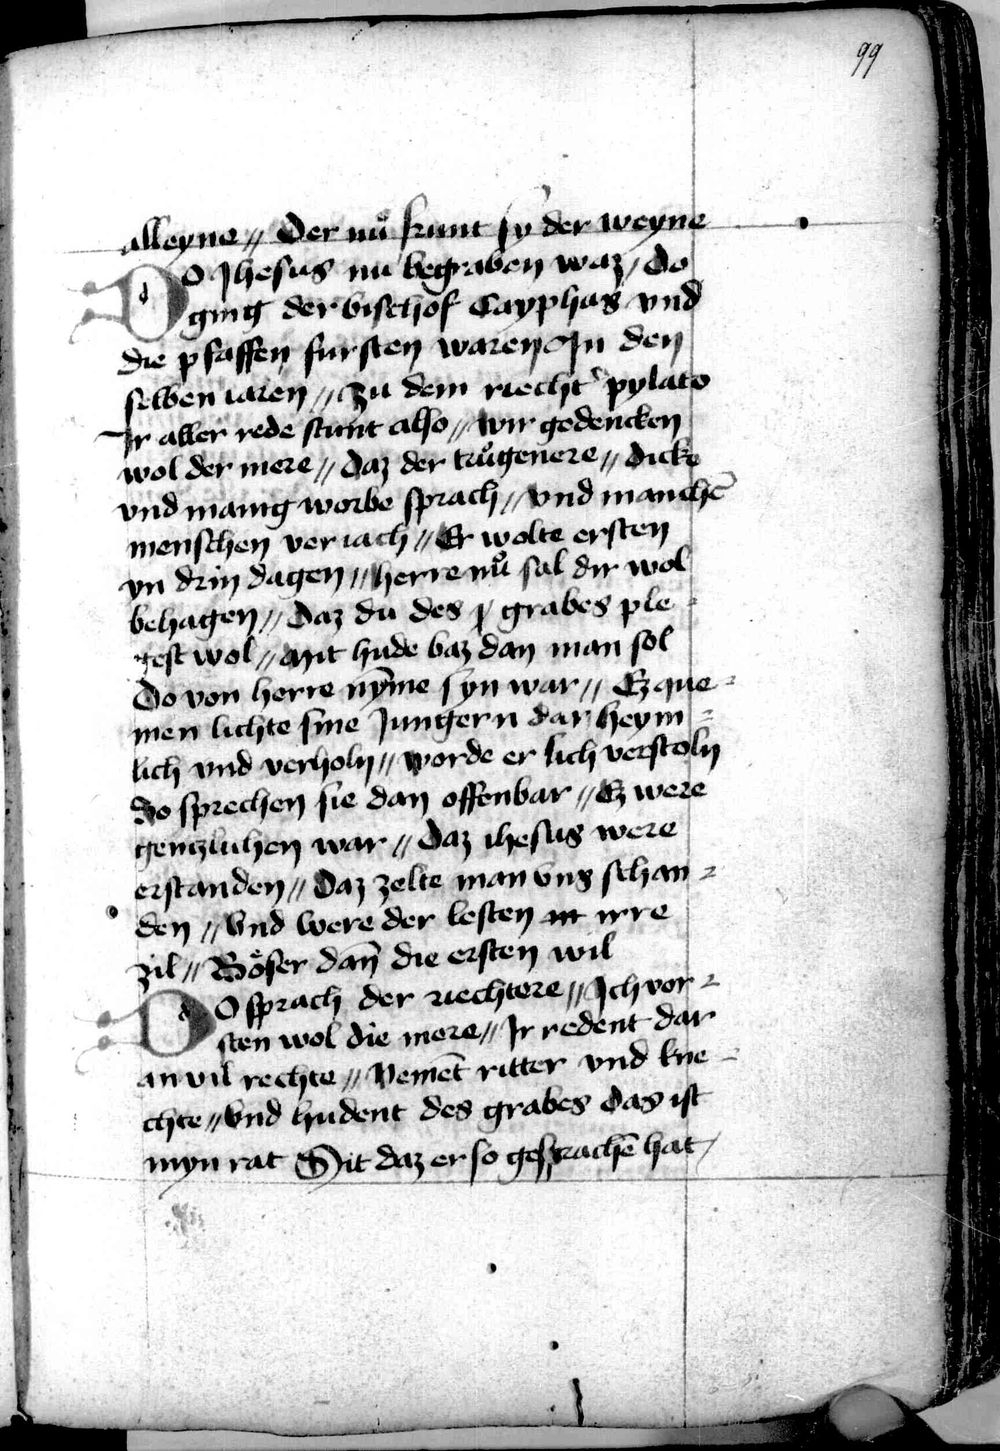 99
alleyne // Der nuͦ kunt sy der weyne
DO Jhesus nu begraben waz / Do
ging der bischof Cayphas vnd
die pfaffen fursten waren Jn den
selben iaren // Zu dem riecht' pylato
Jr aller rede stunt also // Wir gedencken
wol der mere // Daz der truͦgenere // Dicke
vnd manig worbe sprach // vnd manchē
menschen veriach // Er wolte ersten
yn drin dagen // herre nuͦ sal dir wol
behagen // Daz du des grabes ple-
gest wol // Mit hude baz dan man sol
Do von herre nȳme syn war // Ez que-
men lichte sine Jungern dar heym-
lich vnd verholn // worde er lich verstoln
So sprechen sie dan offenbar // Ez were
gentzlichen war // Daz ihesus were
erstanden // Daz zelte man vns schan-
den // Vnd were der lesten irre
zil // Boͤser dan̄ die ersten wil
DO sprach der riechtere // Jch vor-
sten wol die mere // Jr redent dar
an vil rechte // Nemēt ritter vnd kne-
chte // Vnd hudent des grabes Das ist
myn rat Sit daz er so gesprachē hat /